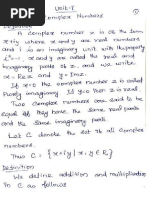 Unit-I
Complex Numbers
Definition
A complex number is of the form
x+iy where x and y are real numbers
and i is an imaginary unit with the property
i²=-1. x and y are called the real and
imaginary parts of z, and we write
x = Re z and y = Im z.
If x=0 the complex number z is called
Purely imaginary, if y=0 then z is real.
Two Complex numbers are said to be
equal iff they have the same real parts
and the same imaginary parts.
Let C denote the set of all complex
numbers.
Thus C = {x+iy | x, y ∈ R}
Definition
We define addition and multiplication
in C as follows